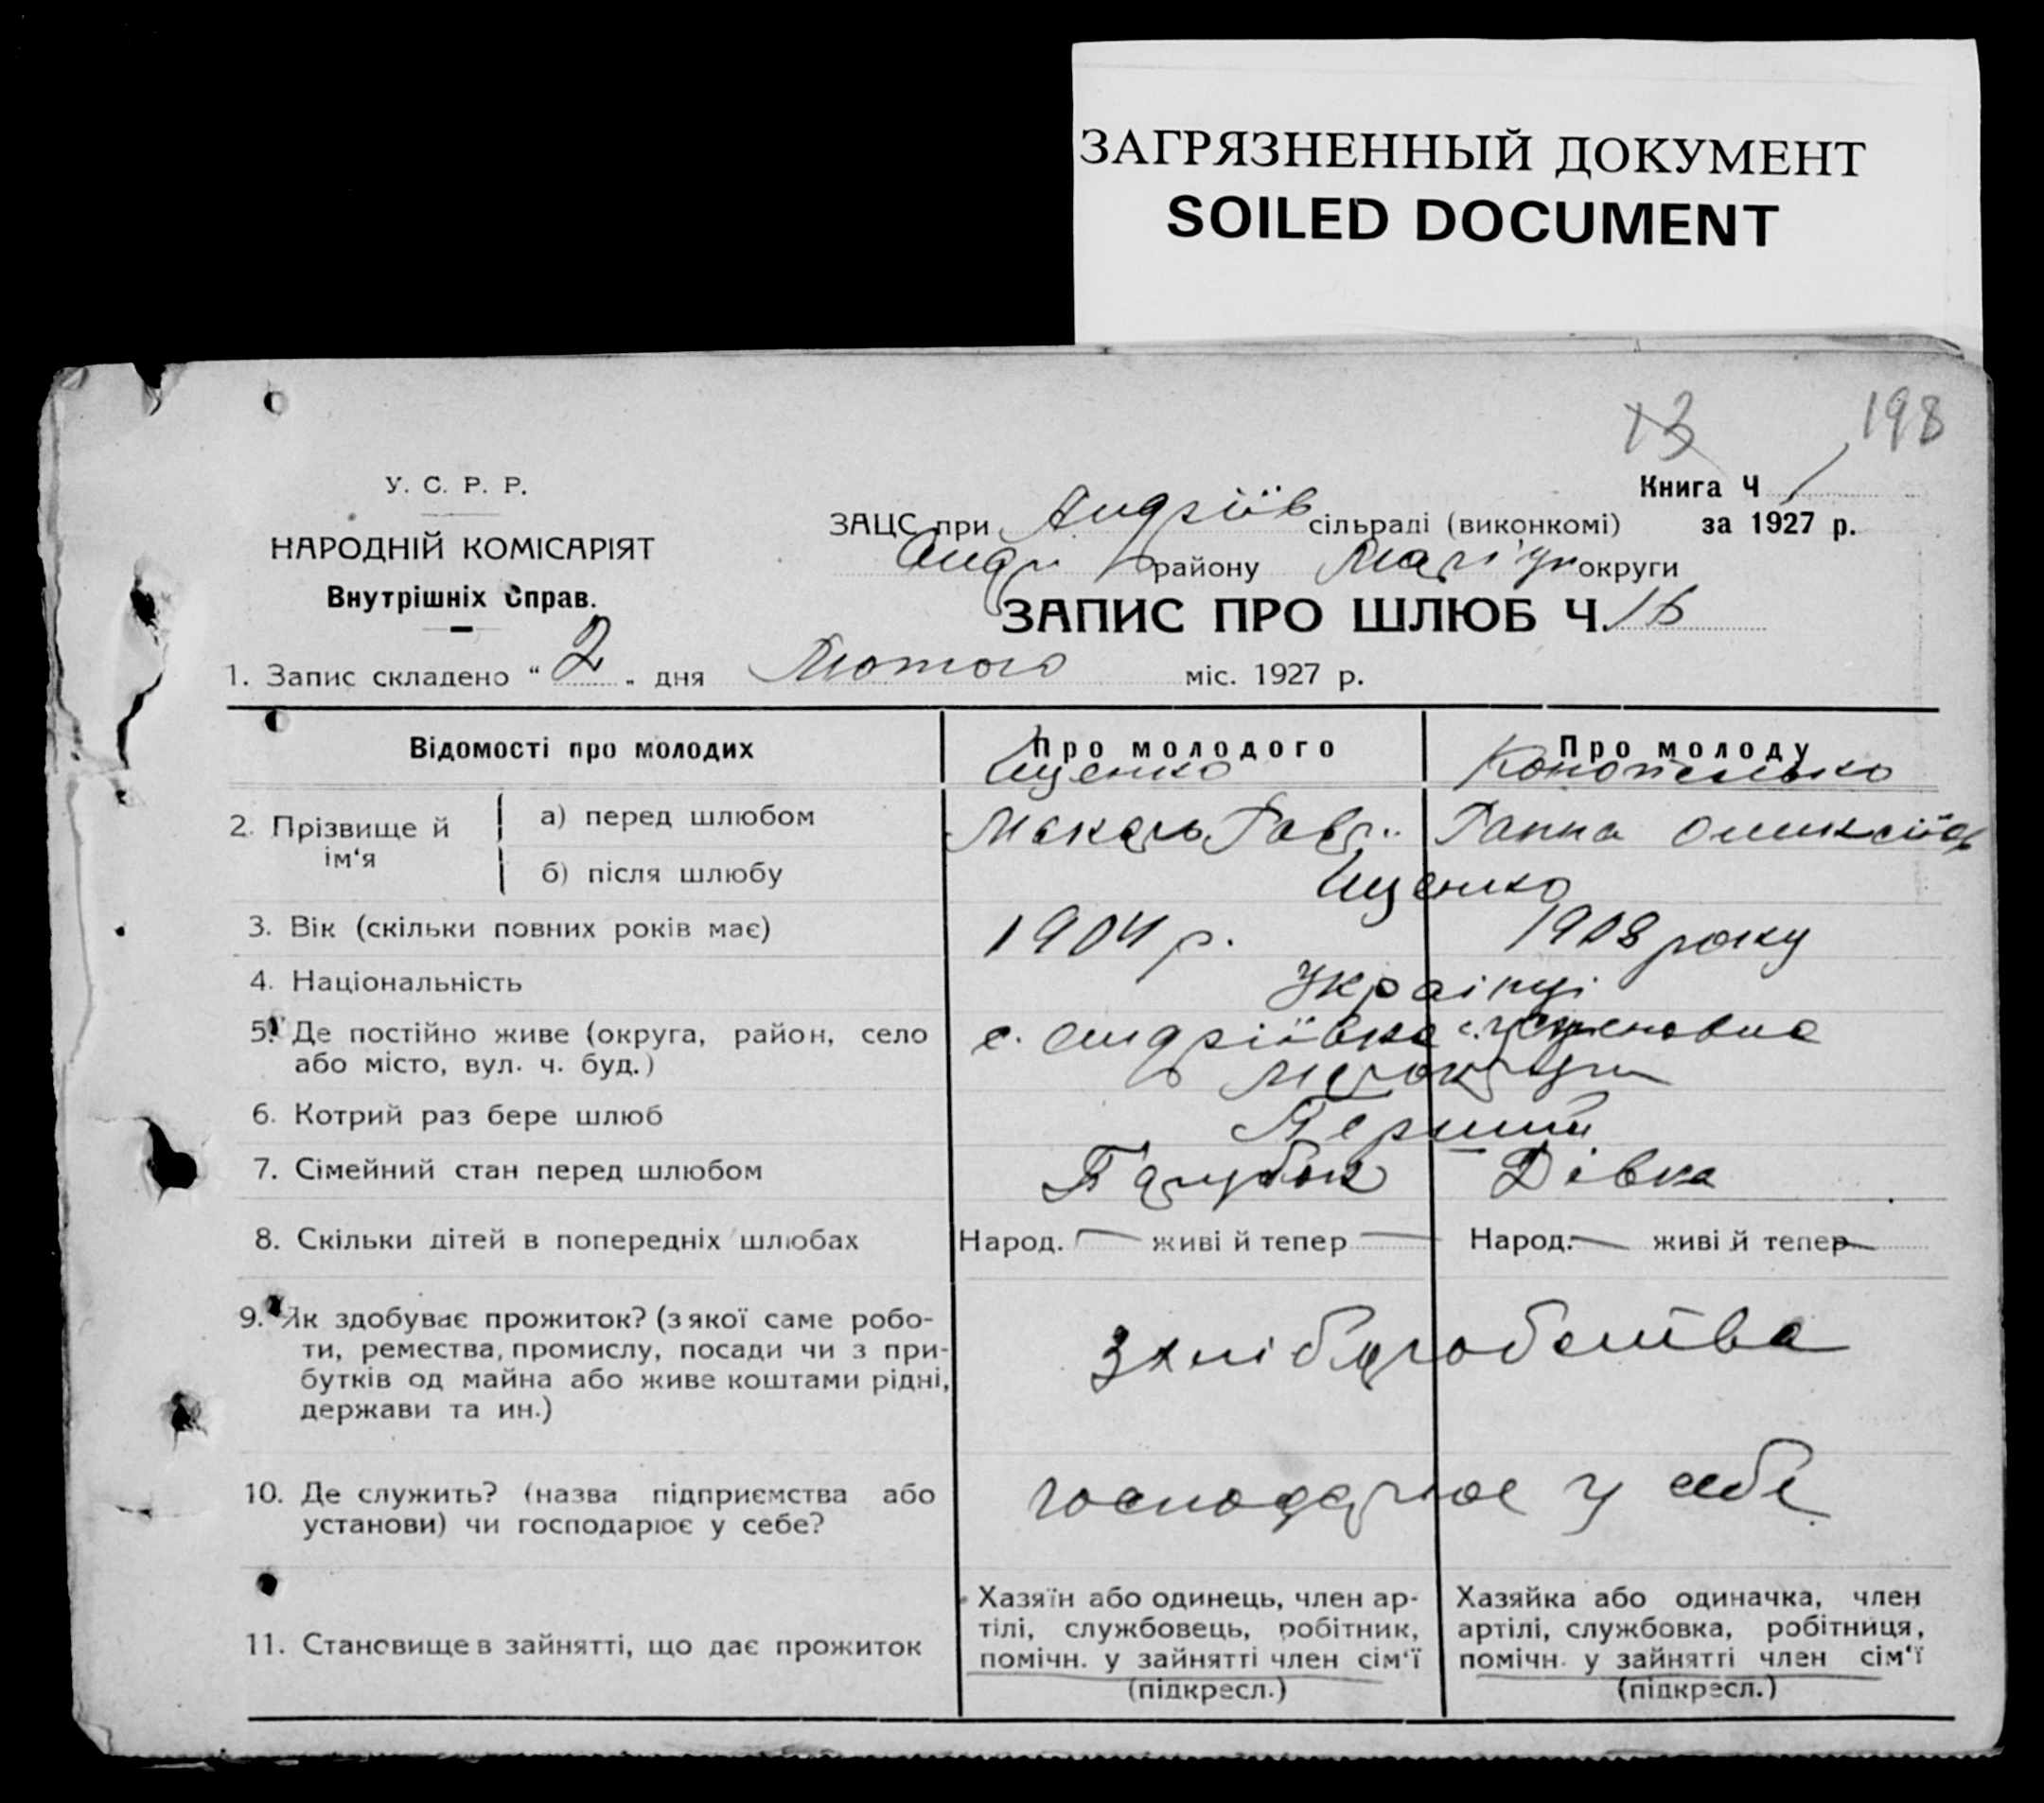 ЗАГРЯЗНЕННЫЙ ДОКУМЕНТ
SOILED DOCUMENT
13 198
У. С. Р. Р.
НАРОДНІЙ КОМІСАРІЯТ
Внутрішніх Справ.
Книга Ч 1
ЗАЦС при Андріїв сільраді (виконкомі) за 1927 р.
Андр району Маріуп округи
ЗАПИС ПРО ШЛЮБ Ч. 16
1. Запис складено “ 2 „ дня Лютого міс. 1927 р.
Відомості про молодих
Про молодого
Про молоду
Іщенко
Конопелько
2. Прізвище й ім‘я
а) перед шлюбом
Макарь Гавр..
Ганна Олексіїв
б) після шлюбу
Іщенко
3. Вік (скільки повних років має)
1904 р.
1908 року
4. Національність
Українці
5. Де постійно живе (округа, район, село
або місто, вул. ч. буд.)
с. Андріївка
6. Котрий раз бере шлюб
Перший
7. Сімейний стан перед шлюбом
Парубок
Дівка
8. Скільки дітей в попередніх шлюбах
Народ. — живі й тепер —
Народ. — живі й тепер —
9. Як здобуває прожиток? (з якої саме робо-
ти, ремества, промислу, посади чи з при-
бутків од майна або живе коштами рідні,
держави та ин.)
З хліборобства
10. Де служить? (назва підприємства або
установи) чи господарює у себе?
господарює у себе
11. Становище в зайнятті, що дає прожиток
Хазяїн або одинець, член ар-
тілі, службовець, робітник,
помічн. у зайнятті член сім‘ї
(підкресл.)
Хазяйка або одиначка, член
артілі, службовка, робітниця,
помічн. у зайнятті член сім‘ї
(підкресл.)